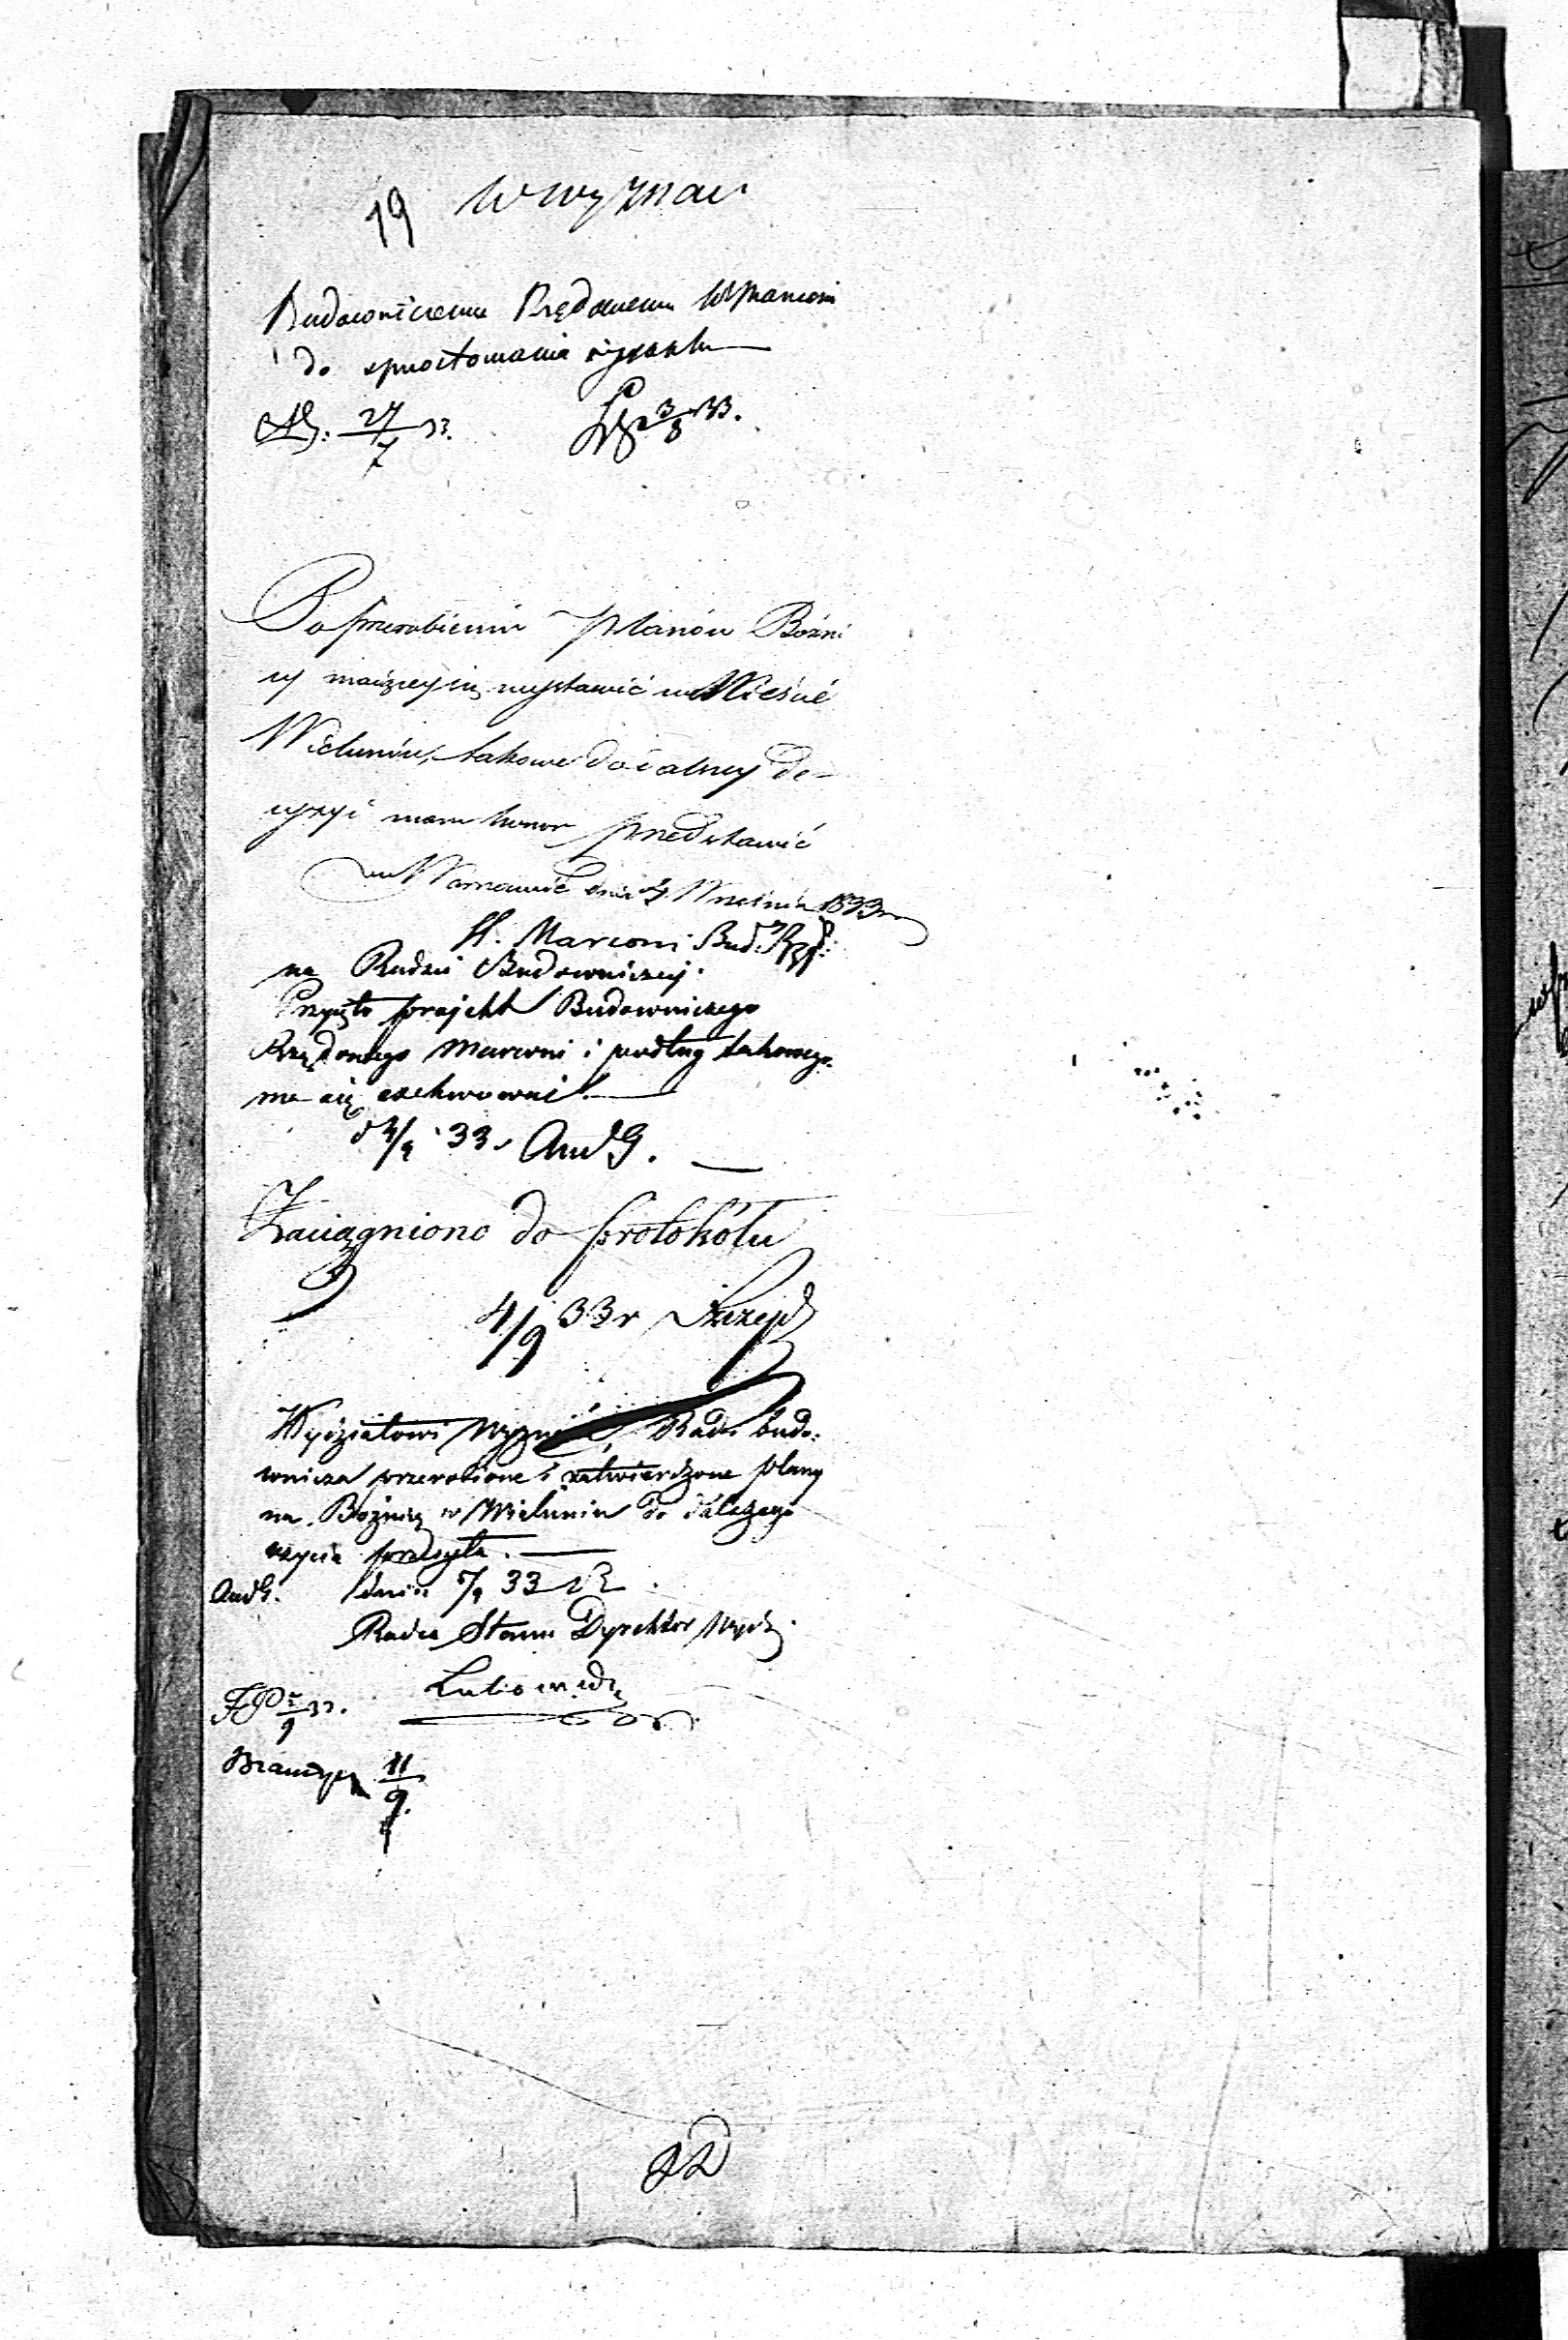 19 W wyznań
Budowniczemu Rządowemu W Marconi
do sprostowania rysunku
27/7 33. 3/8 33.
Po przerobieniu planów Bożni
cy maiącey się wystawić w Mieście
Wieluniu, takowe do dalszey de-
cyzyi mam honor przedstawić
w Warszawie dnia 4 Września 1833
H. Marconi Bud: Rząd:
na Radzie Budowniczej
Przyjęto projekt Budowniczego
Rządowego Marconi i podług takowego
ma się exekwować.
d 4/9 33 AudG.
Zaciągniono do protokółu
4/9 33 r
Wydziałowi Wyznań, Rada budo-
wnicza przerobione i zatwierdzone plany
na Bożnicę w Wieluniu do dalszego
użycia przesyła.
AudG. dnia 7/9 33 r
Radca Stanu Dyrektor Wydz.
Lubowidzki
9 33.
11/9
22